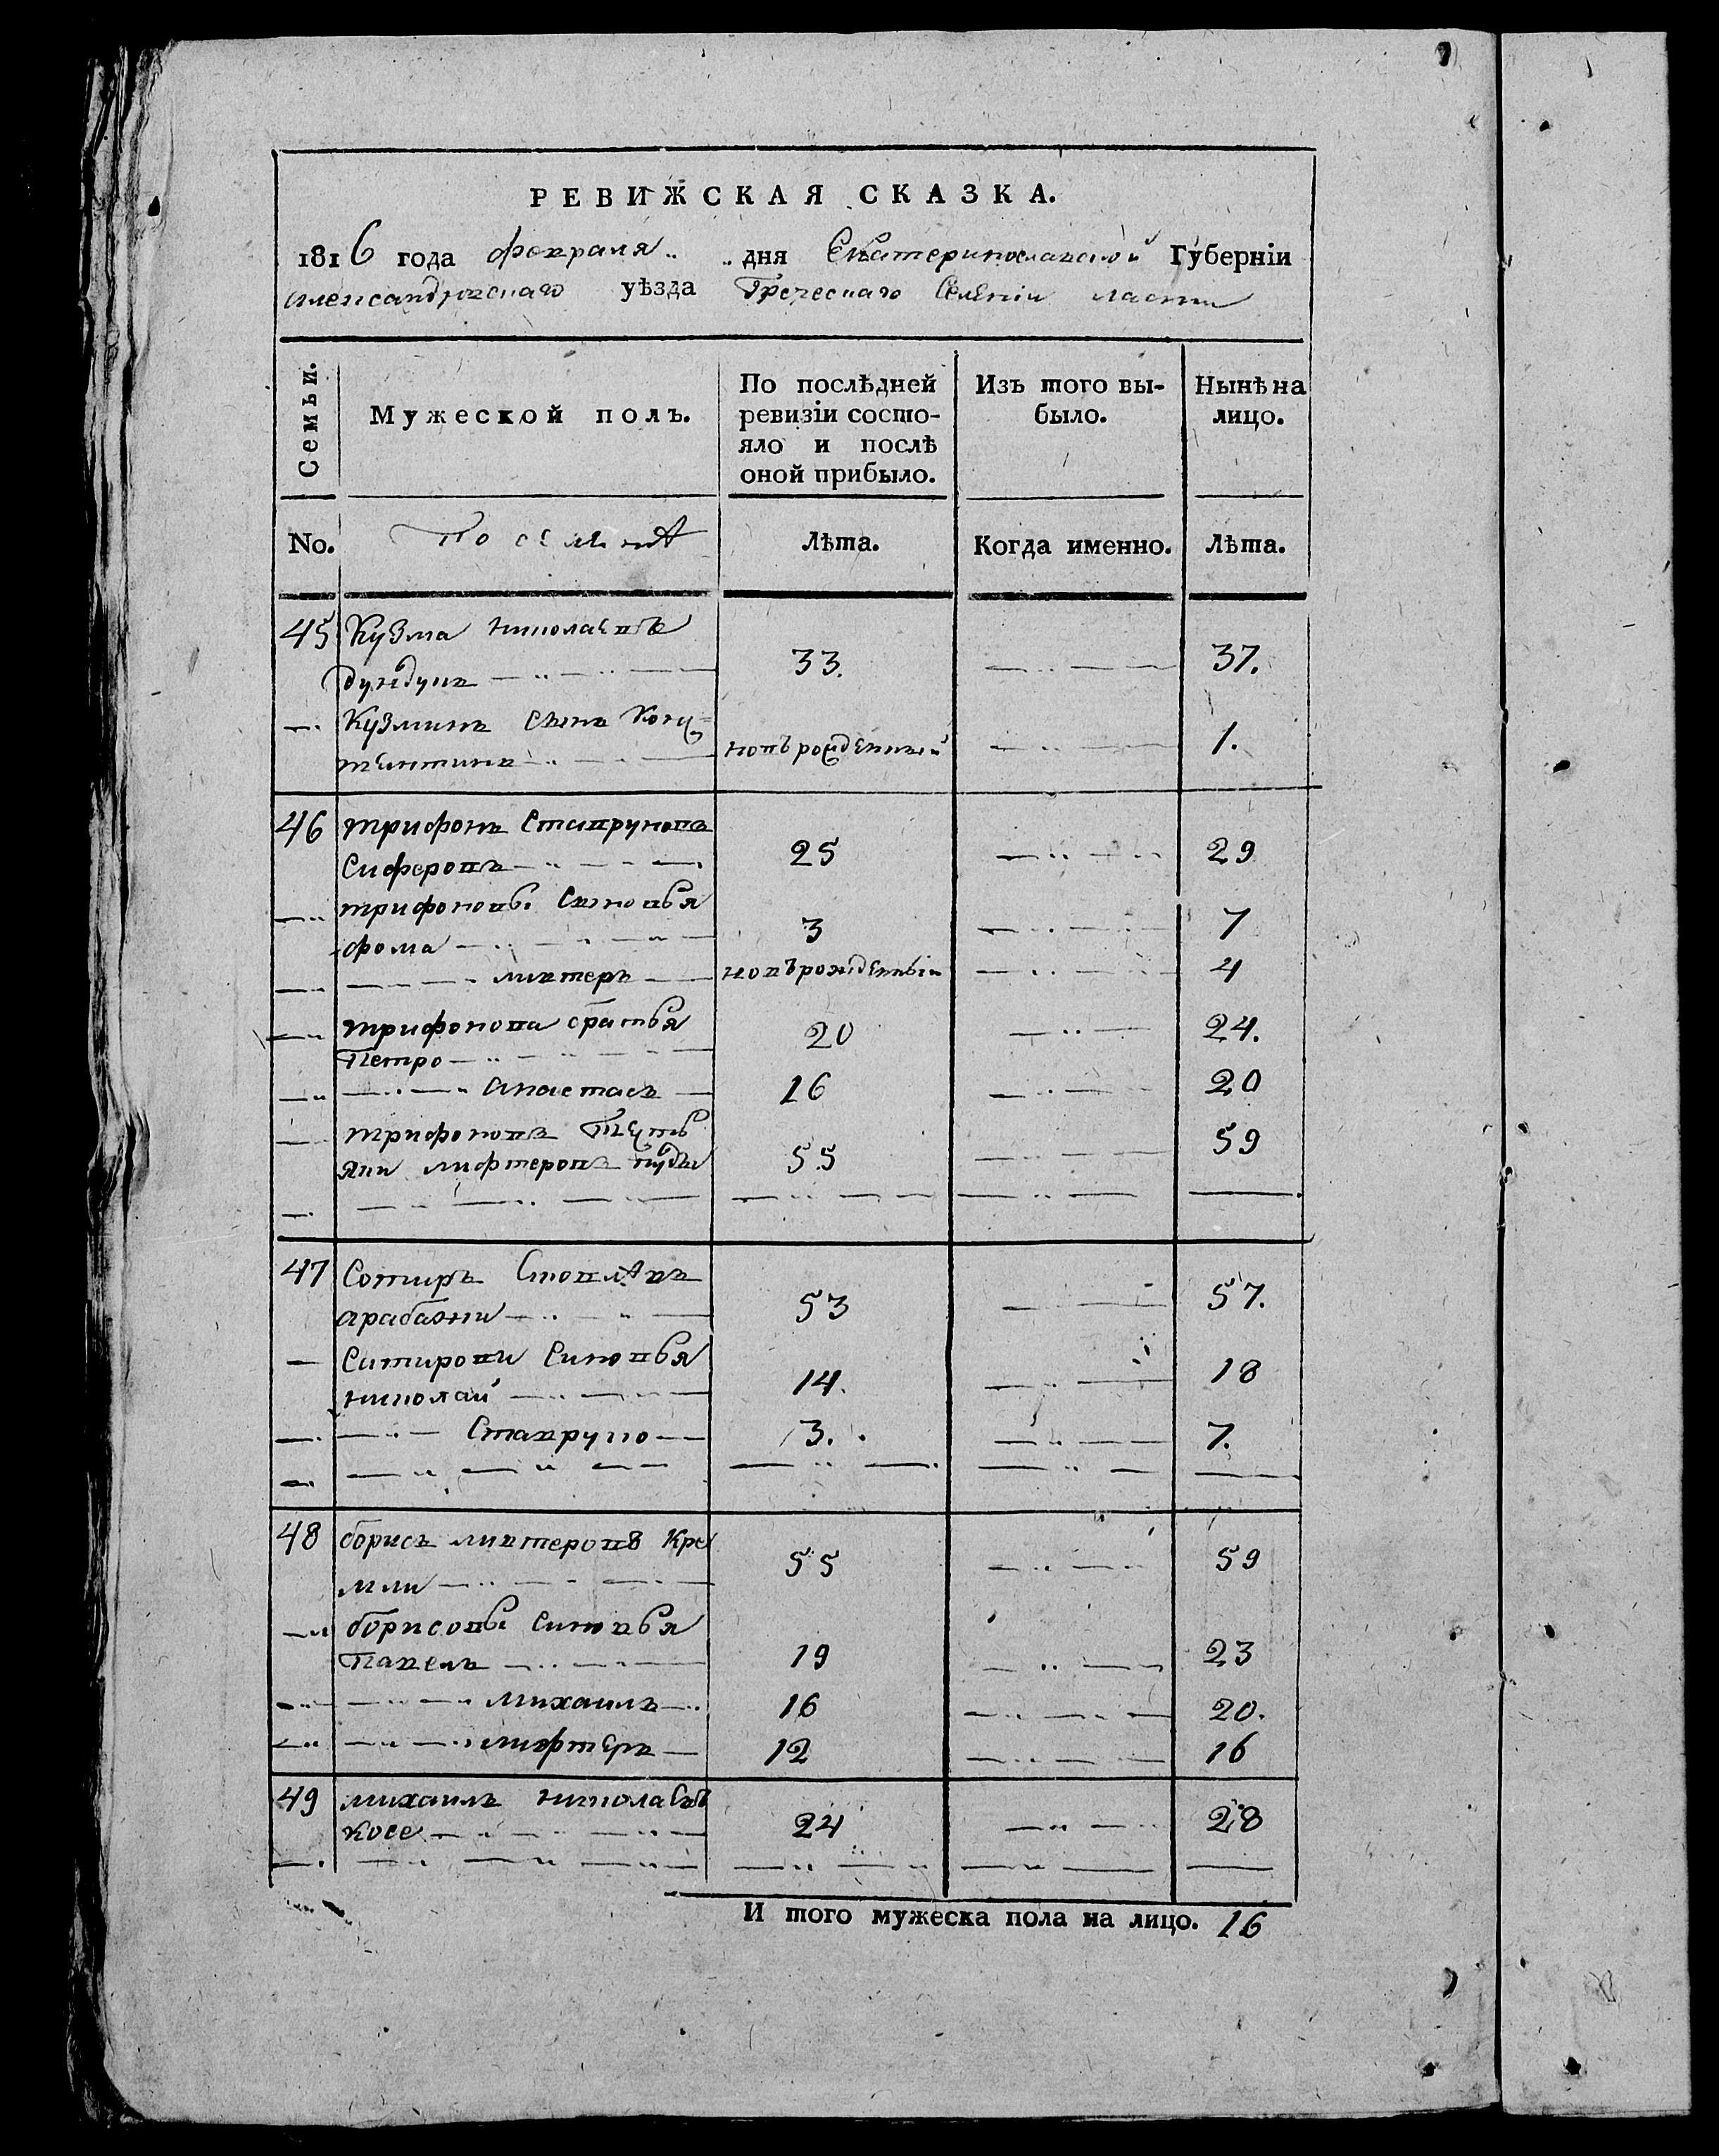 РЕВИЖСКАЯ СКАЗКА.
1816 года февраля дня Екатеринославской Губерніи
Александровскаго уѣзда Греческаго Селенія ласпи
Семьи. Мужеской полъ. По послѣдней ревизіи состояло и послѣ оной прибыло. Изъ того выбыло. Нынѣ на лицо.
No. Поселянѣ Лѣта. Когда именно. Лѣта.
45 Кузма николаевъ
дундукъ 33. 37.
Кузминъ сынъ Конс=
тентинъ новърожденный 1.
46 трифонъ Ставруновъ
Сиферовъ 25 29
трифоновы Сыновья
фома 3 7
ливтеръ новърожденныи 4
трифонова братья
Петро 20 24.
Анастасъ 16 20
трифоновъ Тесть
яни лифтеровъ 55 59
47 Сотиръ
арабажи 53 57.
Сатирови Синовья
николай 14. 18
Ставруно 3. 7.
48 борисъ ливтеровъ Кре
мли 55 59
борисовы Синовья
Павелъ 19 23
михаилъ 16 20.
лифтеръ 12 16
49 михаилъ николаевъ
косе 24 28
И того мужеска пола на лицо. 16